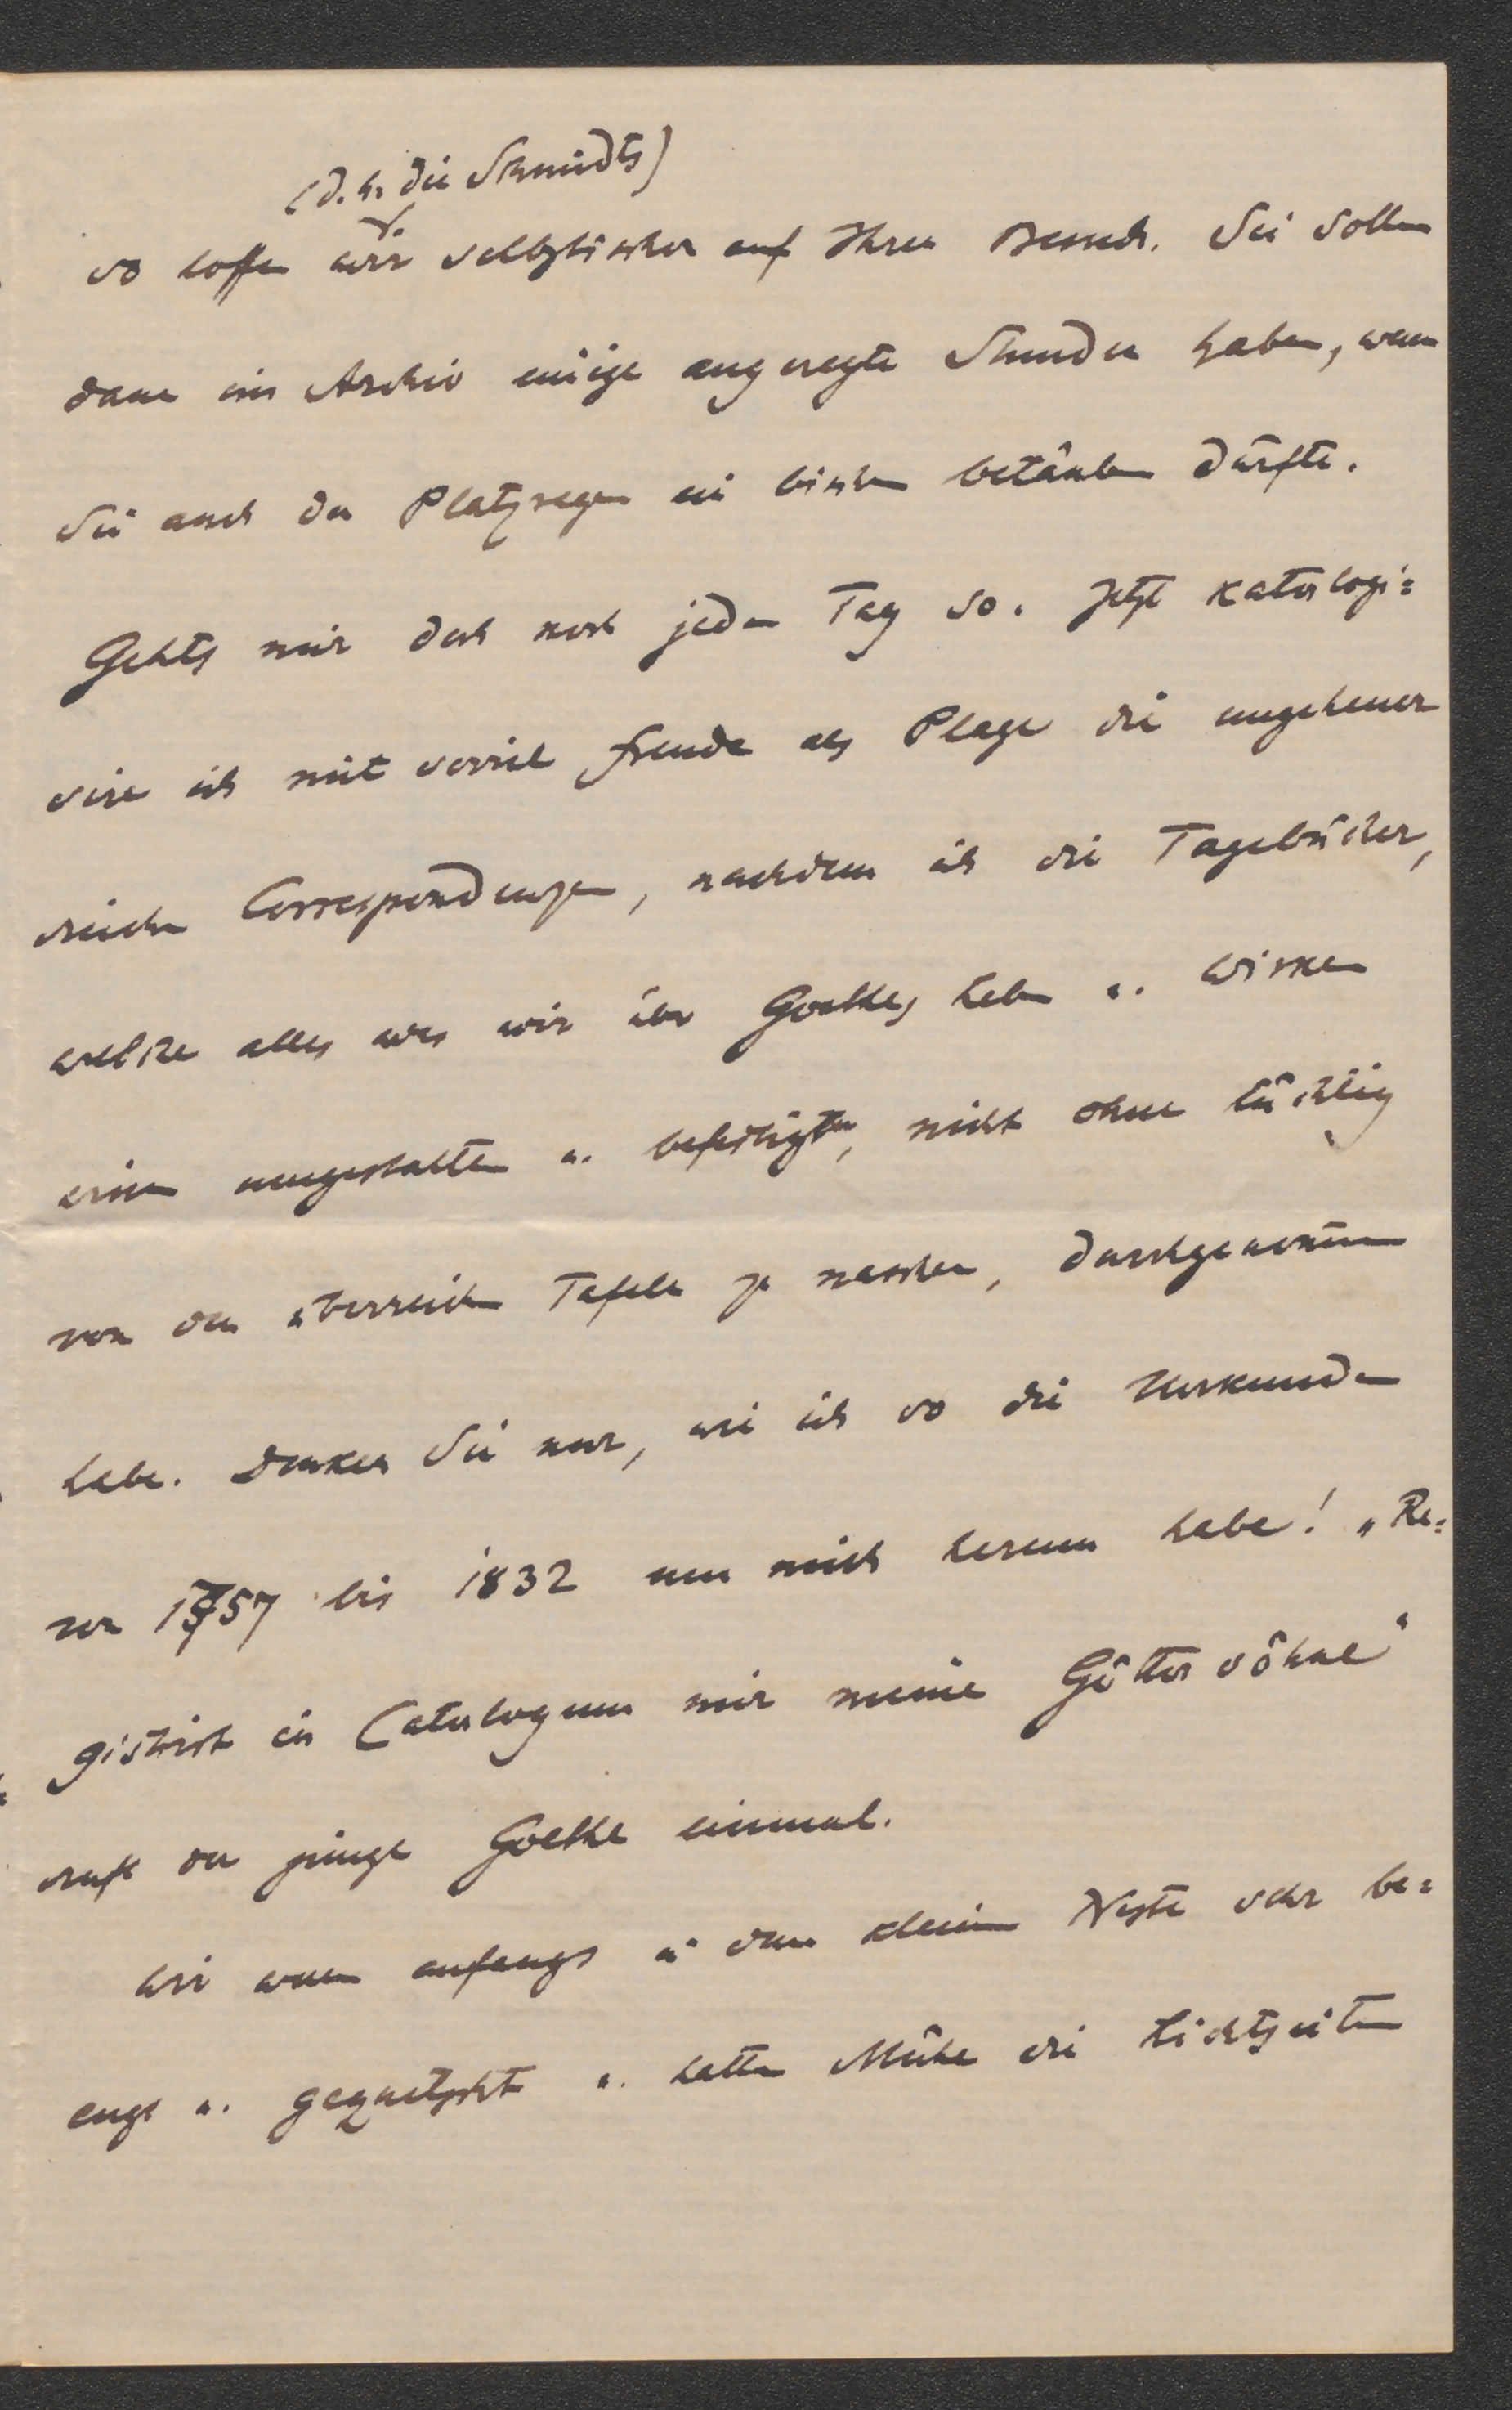 (d. h. die Schmidts)
so hoffen wir selbstischer auf Ihren Besuch. Sie sollen
dann im Archiv einige angeregte Stunden haben, wenn
Sie auch der Platzregen ein bischen betäuben dürfte.
Gehts mir doch noch jeden Tag so. Jetzt katalogi=
sire ich mit soviel Freude als Plage die ungeheuer
reichen Correspondenzen, nachdem ich die Tagebücher,
welche alles was wir über Goethes Leben u. Wirken
wissen umgestalten u. befestigten, nicht ohne tüchtig
von den überreichen Tafeln zu naschen, durchgenommen
habe. Denken Sie nur, wie ich so die Urkunden
von 1757 bis 1832 um mich herum habe! „Re=
gistrirt in Catalogum mir meine Göttersöhne“
ruft der junge Goethe einmal.
Wir waren anfangs in dem kleinen Neste sehr be=
engt u. gequetscht u. hatten Mühe die Lichtseiten